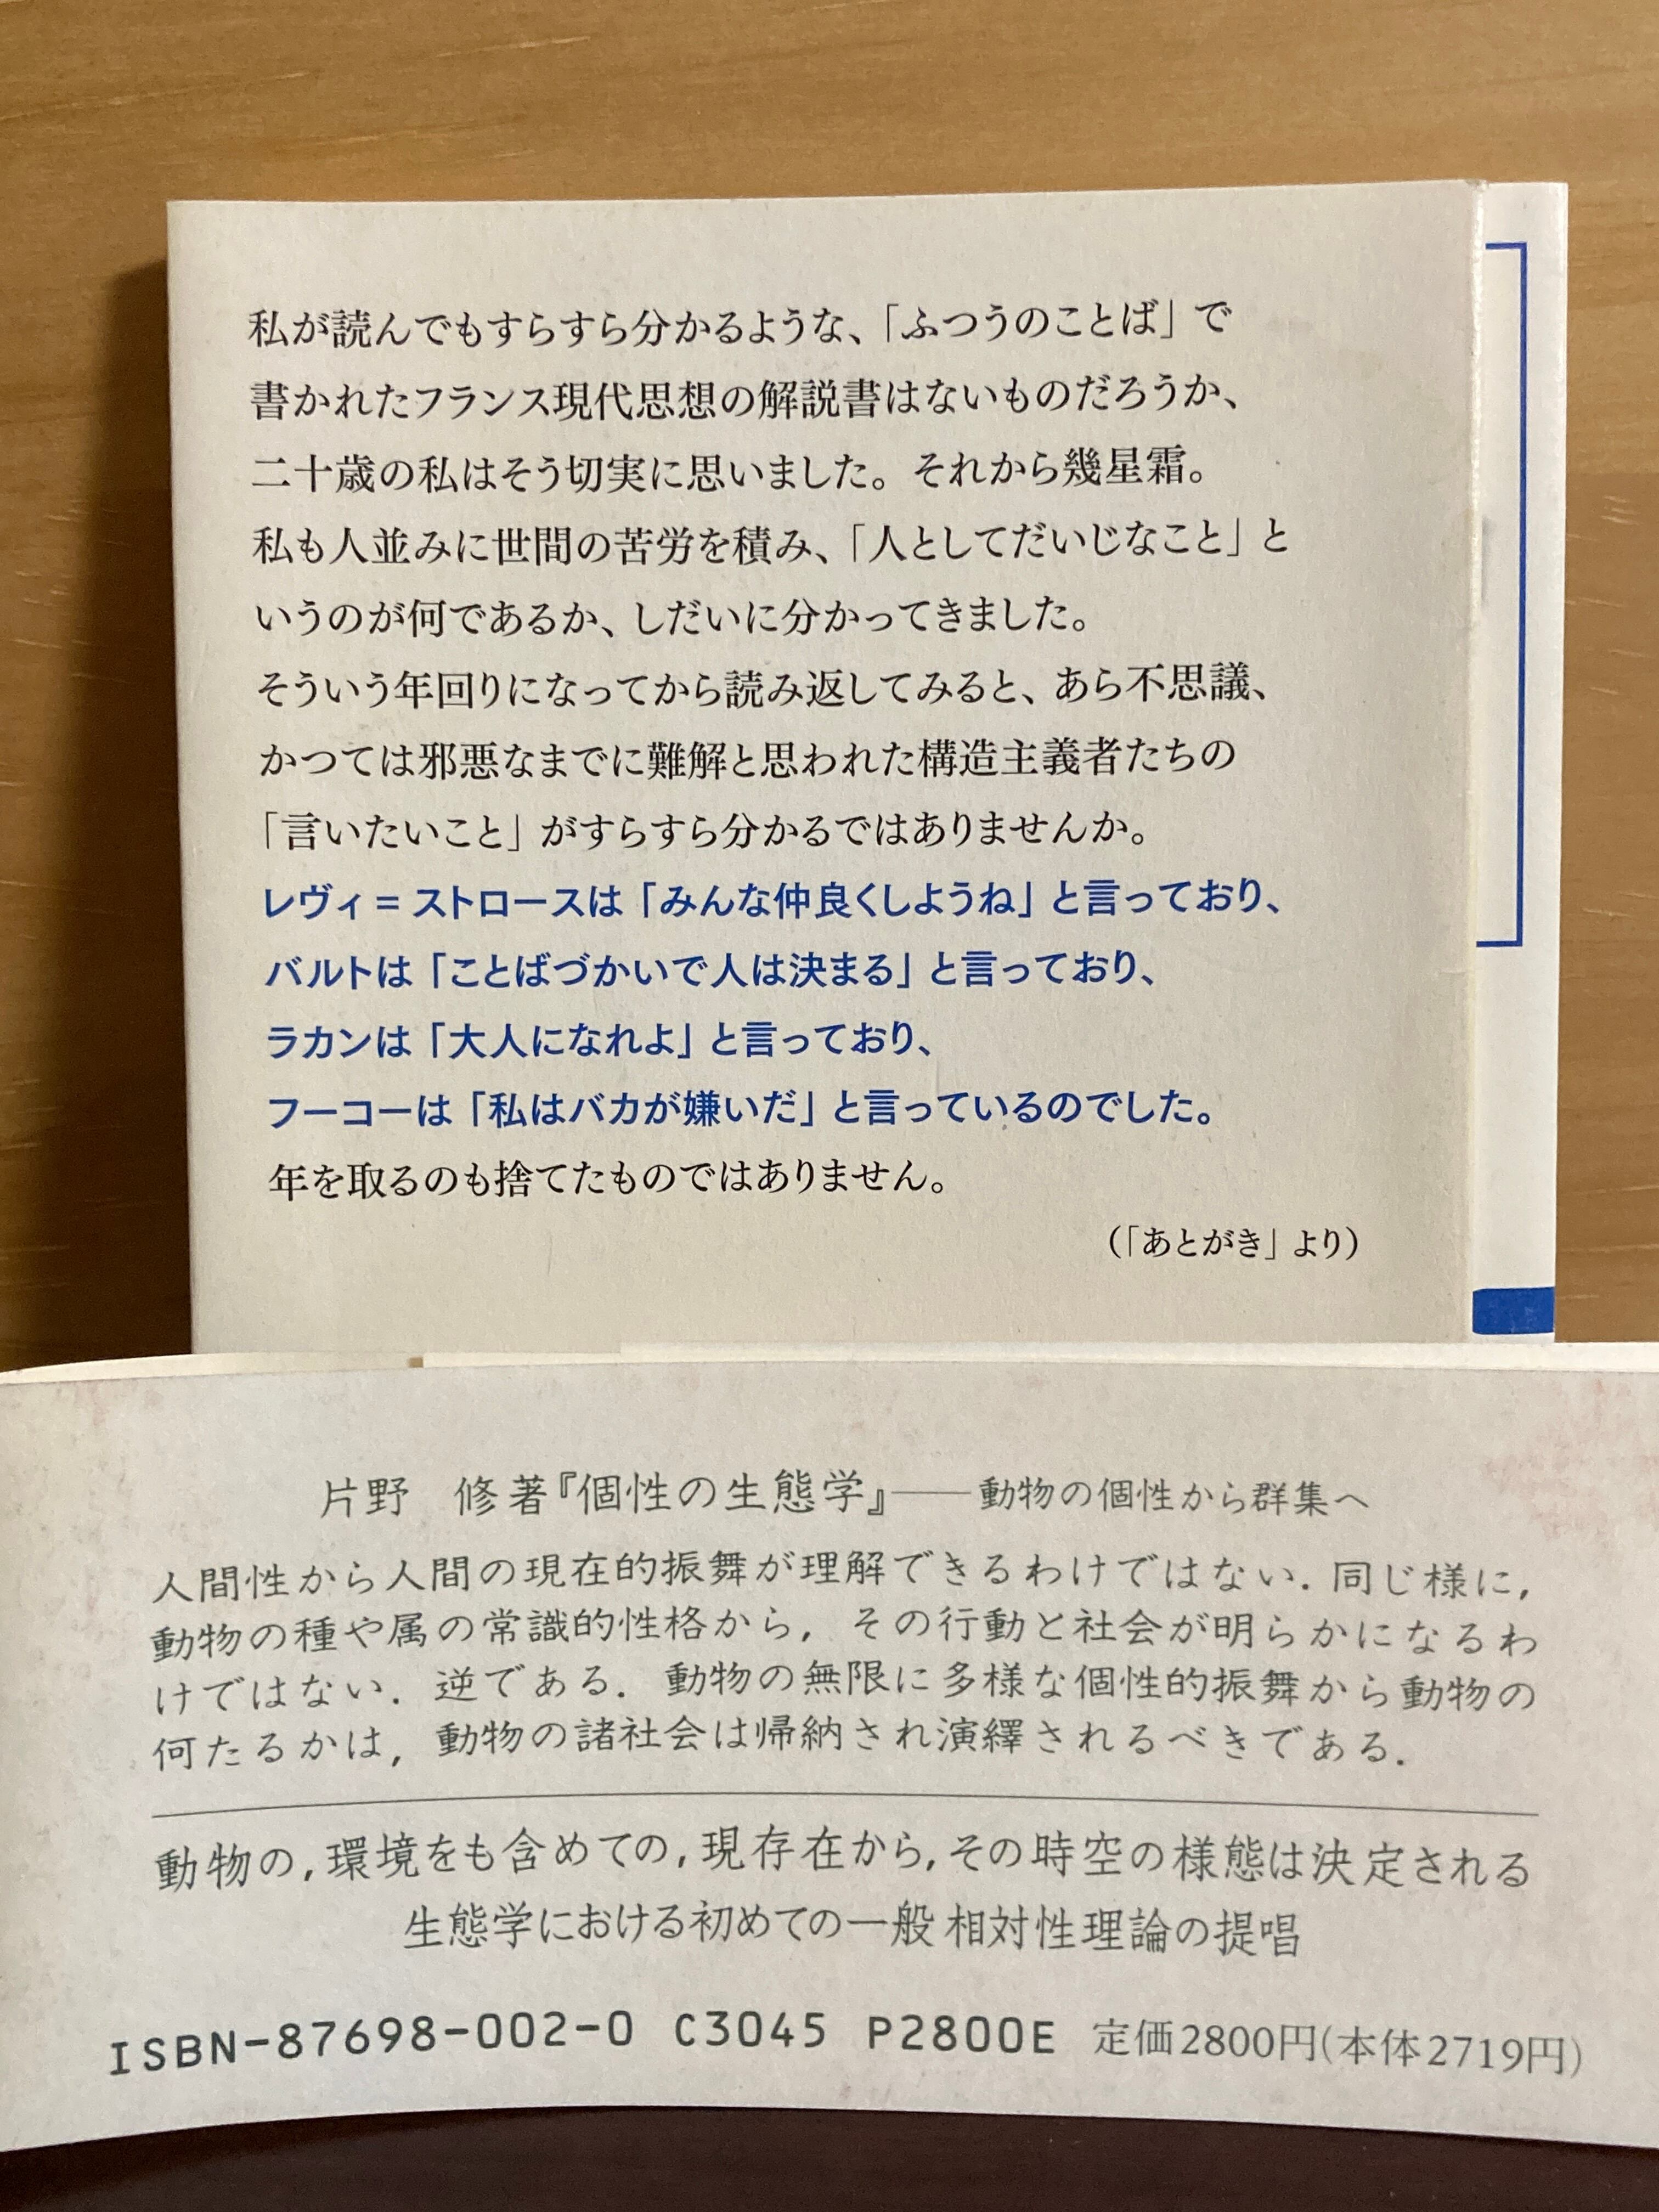 私が読んでもすらすら分かるような、「ふつうのことば」で
書かれたフランス現代思想の解説書はないものだろうか、
二十歳の私はそう切実に思いました。それから幾星霜。
私も人並みに世間の苦労を積み、「人としてだいじなこと」と
いうのが何であるか、しだいに分かってきました。
そういう年回りになってから読み返してみると、あら不思議、
かつては邪悪なまでに難解と思われた構造主義者たちの
「言いたいこと」がすらすら分かるではありませんか。
レヴィ＝ストロースは「みんな仲良くしようね」と言っており、
バルトは「ことばづかいで人は決まる」と言っており、
ラカンは「大人になれよ」と言っており、
フーコーは「私はバカが嫌いだ」と言っているのでした。
年を取るのも捨てたものではありません。
（「あとがき」より）
片野　修著『個性の生態学』——動物の個性から群集へ
人間性から人間の現在的振舞が理解できるわけではない．同じ様に，
動物の種や属の常識的性格から，その行動と社会が明らかになるわ
けではない．逆である．動物の無限に多様な個性的振舞から動物の
何たるかは，動物の諸社会は帰納され演繹されるべきである．
動物の，環境をも含めての，現存在から，その時空の様態は決定される
生態学における初めての一般相対性理論の提唱
ISBN-87698-002-0 C3045 P2800E 定価2800円(本体2719円)